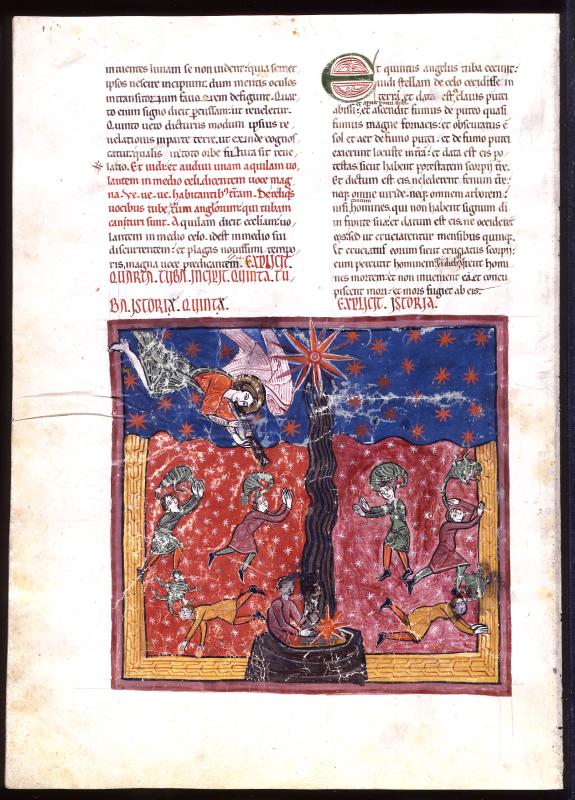 intuentes lunam se non uident: quia semet
ipsos nescire incipiunt. dum inuictis oculos
in defigunt. Quar
to enim signo dicit percussam: ut reueletur.
Quinto uero dicturus modum ipsius re
uelationis in parte terre, ut exinde cognos
catur: qualis in toto orbe futura sit reue
latio. Et uidi: et audiui unam aquilam uo
lantem in medio celi. dicentem uoce mag
na. Ve. ue. ue. habitantibus terram. De reliqis
uocibus tube. trium anglorum: qui tubam
canituri sunt. Aquilam dicit eccliam: uo
lantem in medio celo. idest in medio sui
discurrentem: et plagas nouissimi tempo
ris, magna uoce predicantem. EXPLICIT
QUARTA TUBA. INCIPIT. QUINTA. TU
BA. ISTORIA. QUINTA.
Et quintus angelus tuba cecinit:
et uidi stellam de celo cecidisse in
terra, et data est ei clauis putei
abissi: et ascendit fumus de puteo quasi
fumus magne fornacis: et obscuratus est
sol et aer de fumo putei. et de fumo putei
exierunt locuste in terra: et data est eis po
testas sicut habent potestatem scorpii terre.
Et dictum est eis, ne lederent fenum terre:
neque omne uiride: neque omnem arborem:
nisi homines. qui non habent signum di
in fronte sua: et datum est eis. ne occiderent
eos: sed ut cruciarentur mensibus quinque.
Et cruciatus eorum sicut cruciatus scorpii:
cum percutit hominem. In diebus querent homi
nes mortem: et non inuenient ea: et concu
piscent mori: et mors fugiet ab eis.
EXPLICIT. ISTORIA.